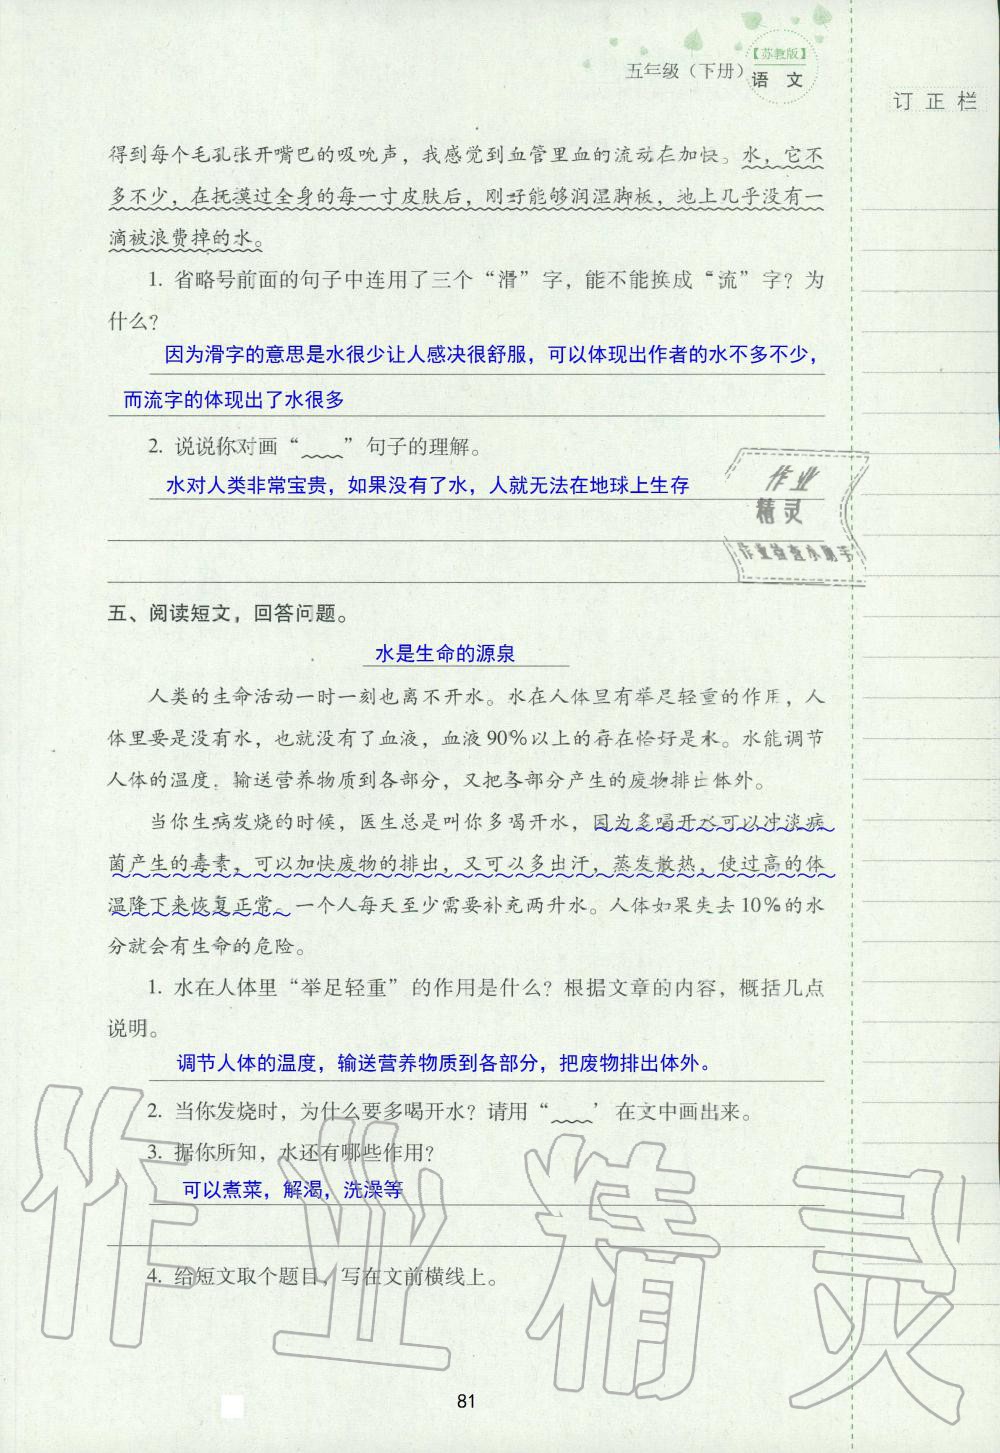 五年级（下册）
【苏教版】
语 文
订 正 栏
得到每个毛孔张开嘴巴的吸吮声，我感觉到血管里血的流动在加快。水，它不
多不少，在抚摸过全身的每一寸皮肤后，刚好能够润湿脚板，地上几乎没有一
滴被浪费掉的水。
1. 省略号前面的句子中连用了三个“滑”字，能不能换成“流”字？为
什么？
因为滑字的意思是水很少让人感决很舒服，可以体现出作者的水不多不少，
而流字的体现出了水很多
2. 说说你对画“﹏﹏”句子的理解。
水对人类非常宝贵，如果没有了水，人就无法在地球上生存
作业
精灵
作业检查小助手
五、阅读短文，回答问题。
水是生命的源泉
人类的生命活动一时一刻也离不开水。水在人体里有举足轻重的作用，人
体里要是没有水，也就没有了血液，血液90%以上的存在恰好是水。水能调节
人体的温度，输送营养物质到各部分，又把各部分产生的废物排出体外。
当你生病发烧的时候，医生总是叫你多喝开水，因为多喝开水可以冲淡病
菌产生的毒素，可以加快废物的排出，又可以多出汗，蒸发散热，使过高的体
温降下来恢复正常。一个人每天至少需要补充两升水。人体如果失去10%的水
分就会有生命的危险。
1. 水在人体里“举足轻重”的作用是什么？根据文章的内容，概括几点
说明。
调节人体的温度，输送营养物质到各部分，把废物排出体外。
2. 当你发烧时，为什么要多喝开水？请用“﹏﹏”在文中画出来。
3. 据你所知，水还有哪些作用？
可以煮菜，解渴，洗澡等
4. 给短文取个题目，写在文前横线上。
作业精灵
81